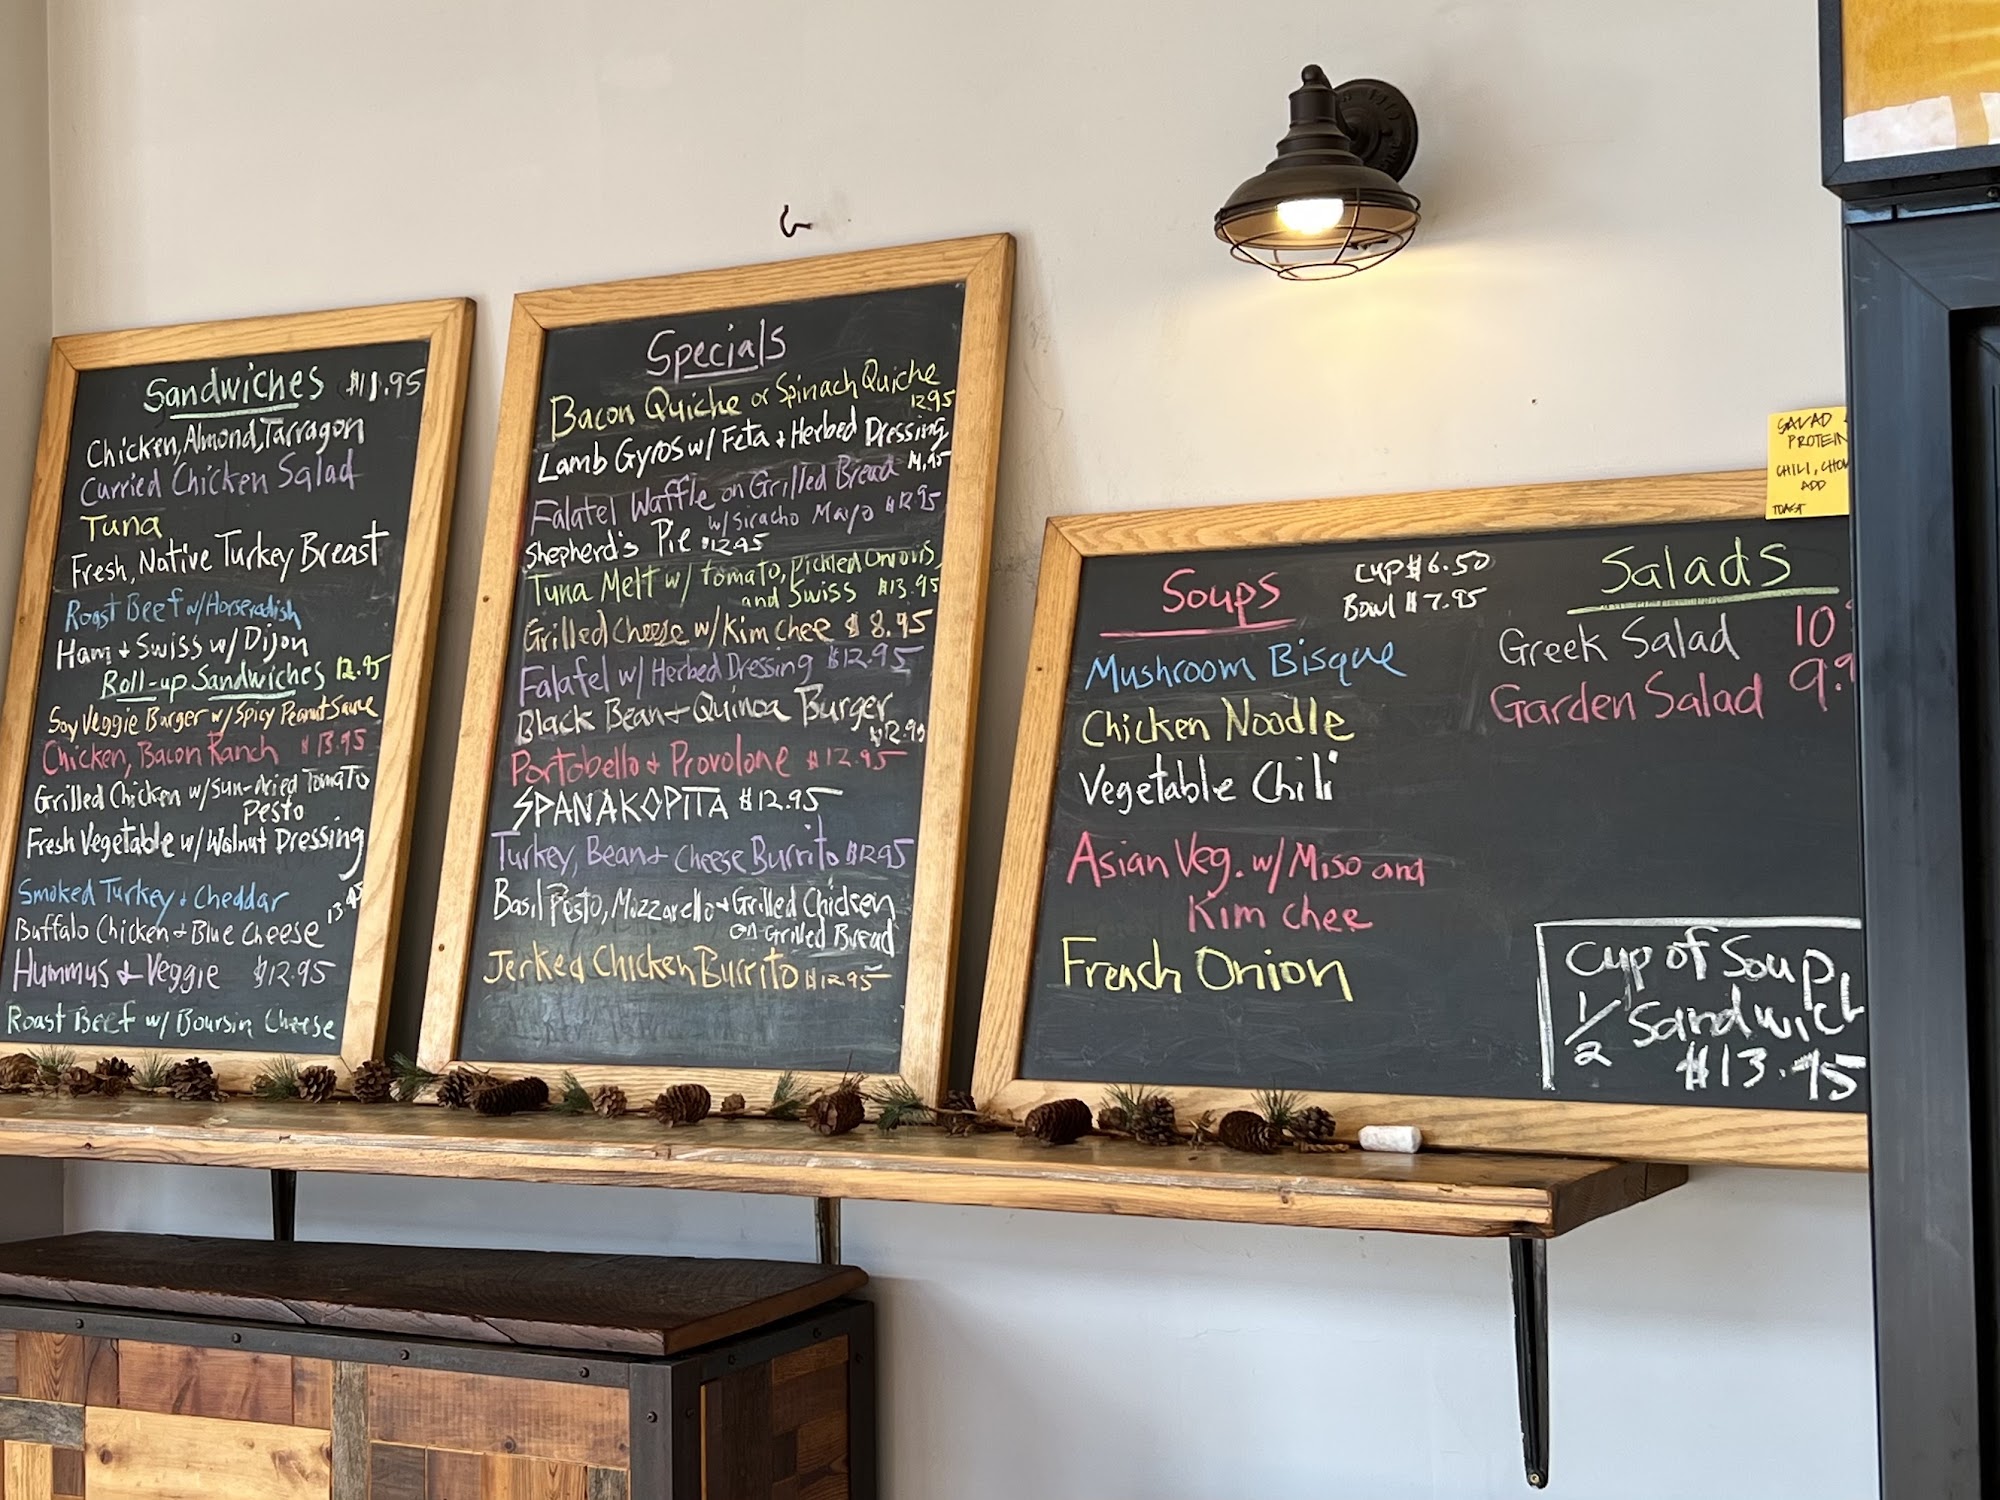 Sandwiches $11.95
Chicken, Almond, Tarragon
Curried Chicken Salad
Tuna
Fresh, Native Turkey Breast
Roast Beef w/Horseradish
Ham + Swiss w/ Dijon
Roll-up Sandwiches 12.95
Soy Veggie Burger w/ Spicy Peanut Sauce
Chicken, Bacon Ranch $13.95
Grilled Chicken w/ Sun-dried Tomato
Pesto
Fresh Vegetable w/ Walnut Dressing
Smoked Turkey + Cheddar
Buffalo Chicken + Blue Cheese 13.95
Hummus + Veggie $12.95
Roast Beef w/ Boursin Cheese
Specials
Bacon Quiche or Spinach Quiche
12.95
Lamb Gyros w/ Feta + Herbed Dressing
14.95
Falafel Waffle on Grilled Bread
w/ Siracho Mayo $12.95
Shepherd's Pie $12.95
Tuna Melt w/ tomato, Pickled Onions,
and Swiss $13.95
Grilled Cheese w/ Kim chee $8.95
Falafel w/ Herbed Dressing $12.95
Black Bean + Quinoa Burger
$12.95
Portobello + Provolone $12.95
SPANAKOPITA $12.95
Turkey, Bean + Cheese Burrito $12.95
Basil Pesto, Mozzarello + Grilled Chicken
on Grilled Bread
Jerked Chicken Burrito $12.95
Soups
Cup $6.50
Bowl $7.95
Mushroom Bisque
Chicken Noodle
Vegetable Chili
Asian Veg. w/ Miso and
Kim chee
French Onion
Salads
Greek Salad 10
Garden Salad 9.9
Cup of Soup,
1/2 Sandwich
$13.95
SALAD
PROTEIN
CHILI, CHOW
ADD
TOAST